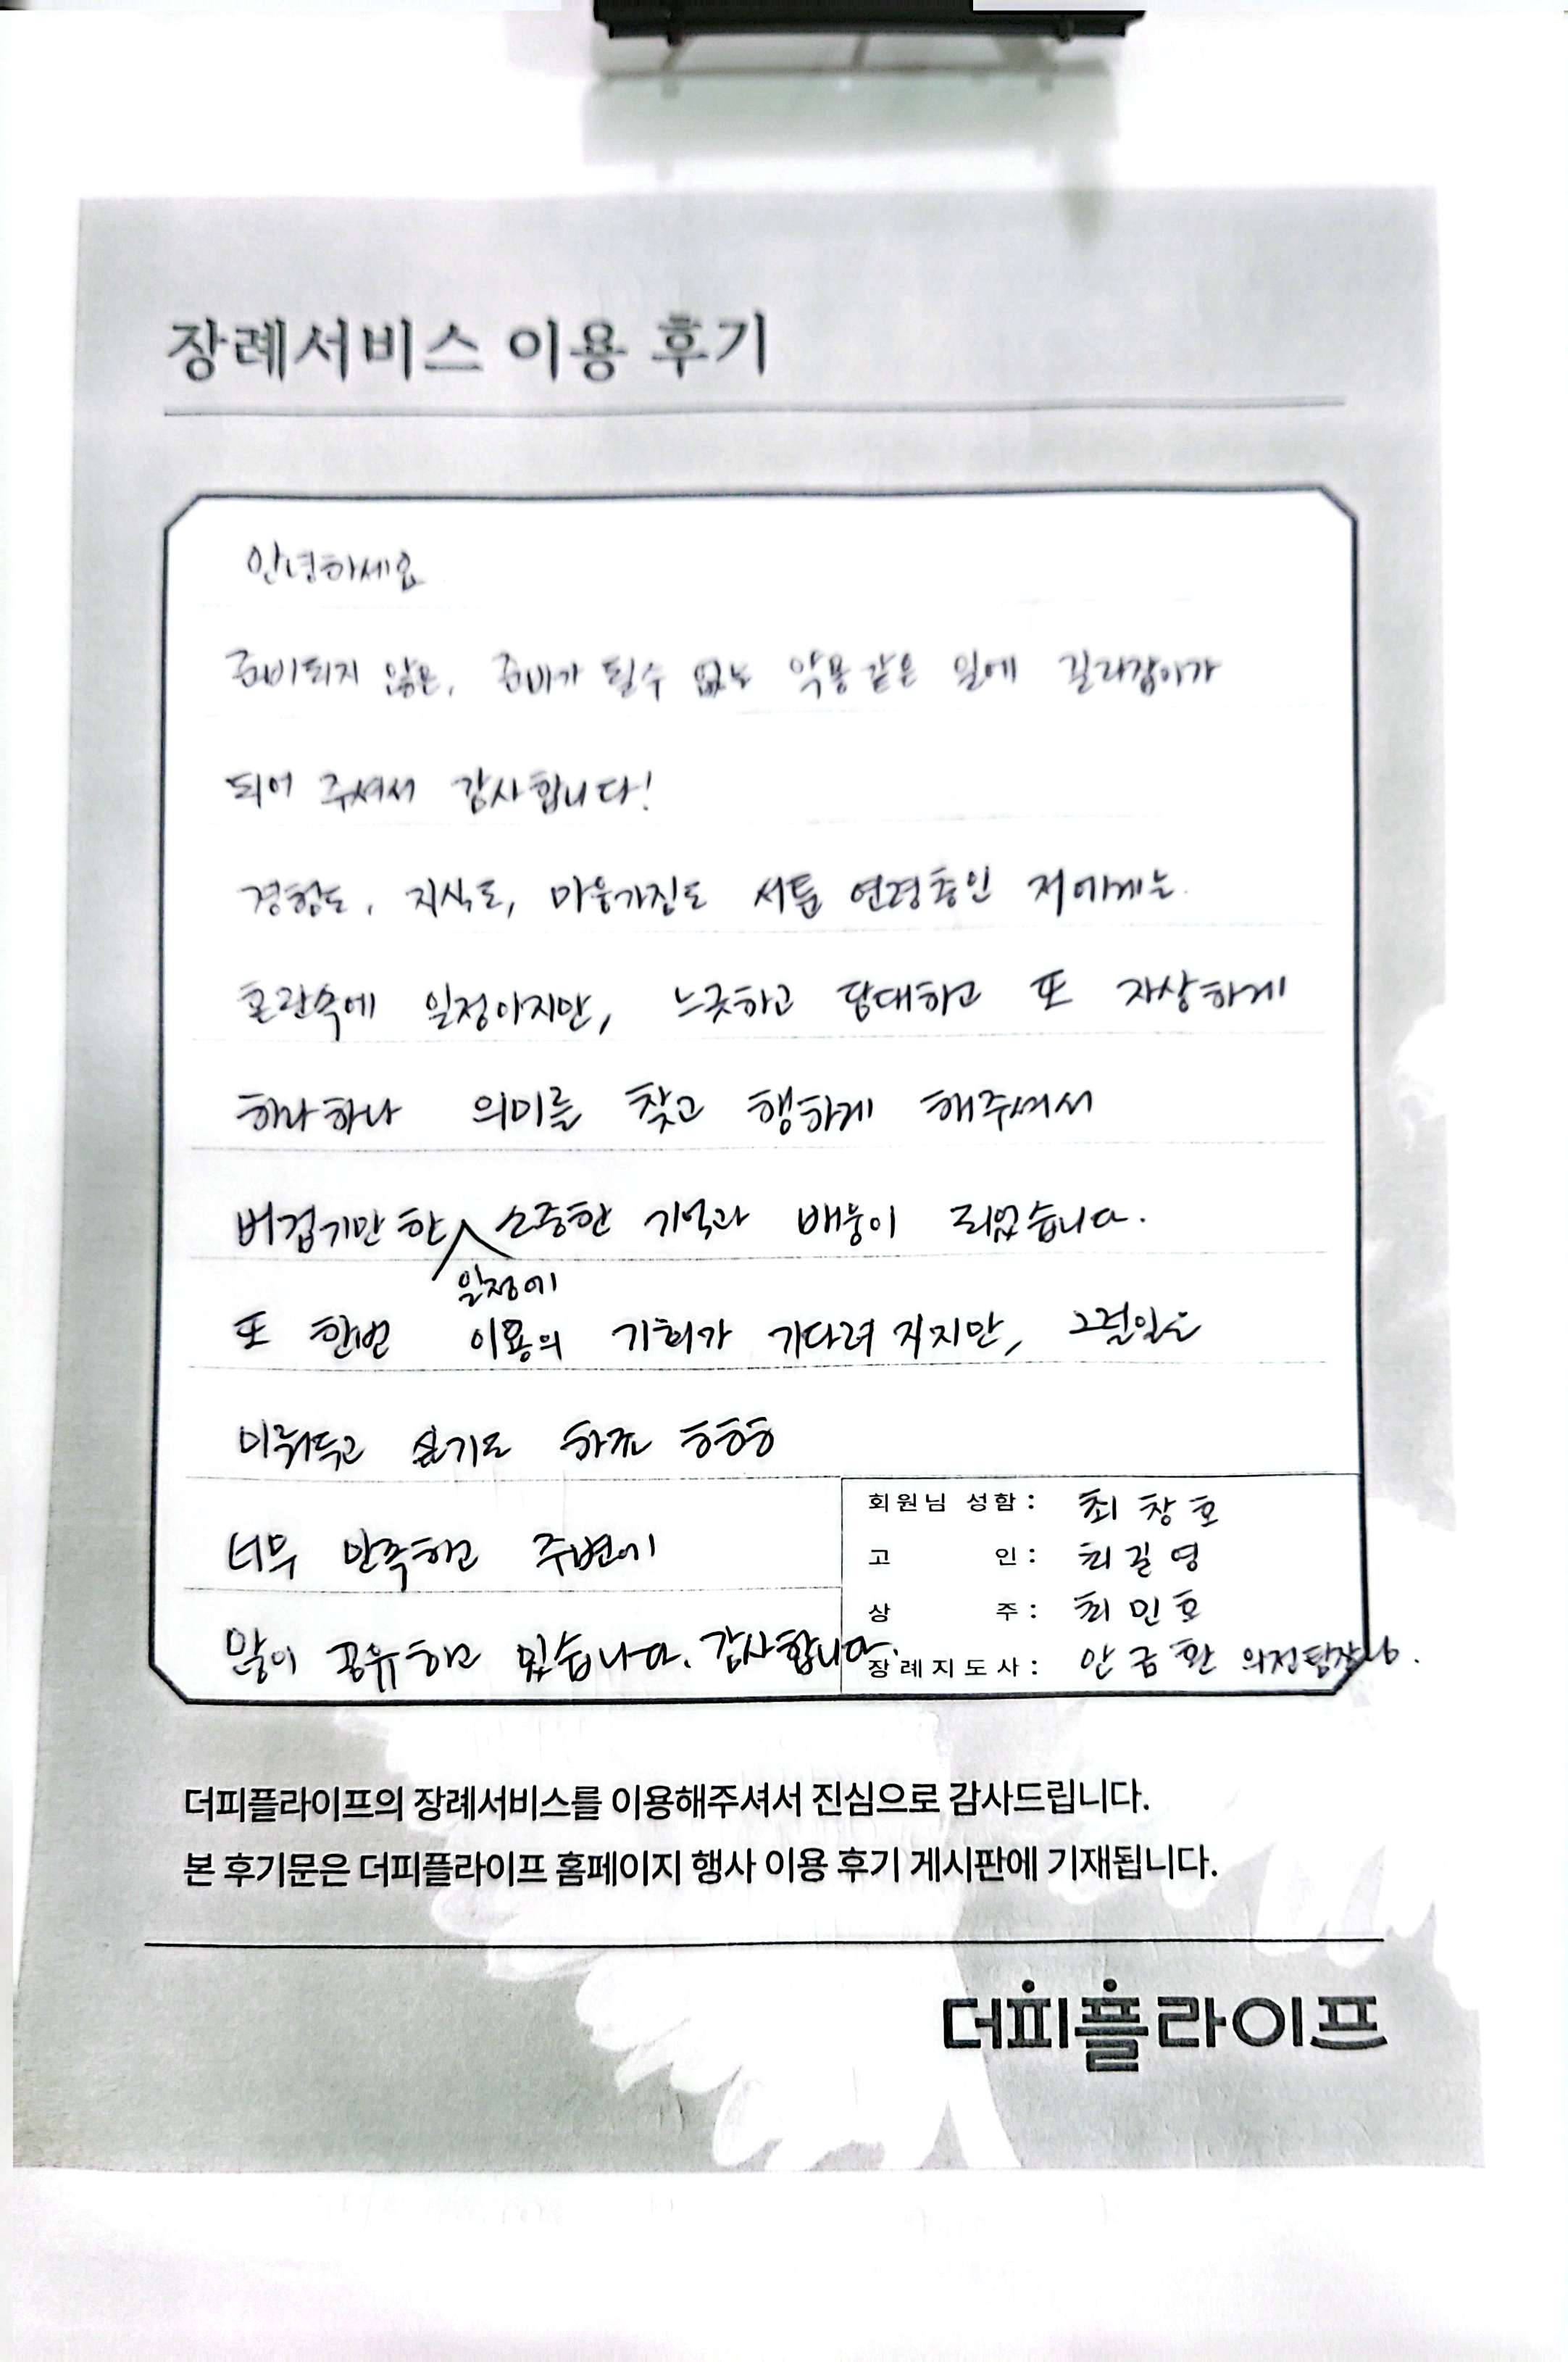 장례서비스 이용 후기
안녕하세요
준비되지 않은, 준비가 될수 없는 악몽같은 일에 길라잡이가
되어 주셔서 감사합니다!
경험도, 지식도, 마음가짐도 서툰 연령층인 저에게는
혼란속에 일정이지만, 느긋하고 담대하고 또 자상하게
하나하나 의미를 찾고 행하게 해주셔서
버겁기만 한 소중한 기억과 배웅이 되었습니다.
일정에
또 한번 이용의 기회가 기다려 지지만, 그럴일은
미뤄두고 싶기도 하죠 ㅎㅎㅎ
너무 만족하고 주변에
많이 공유하고 있습니다. 감사합니다.
회원님 성함: 최창호
고 인: 최길영
상 주: 최민호
장례지도사: 안금환 의전팀장님.
더피플라이프의 장례서비스를 이용해주셔서 진심으로 감사드립니다.
본 후기문은 더피플라이프 홈페이지 행사 이용 후기 게시판에 기재됩니다.
더피플라이프